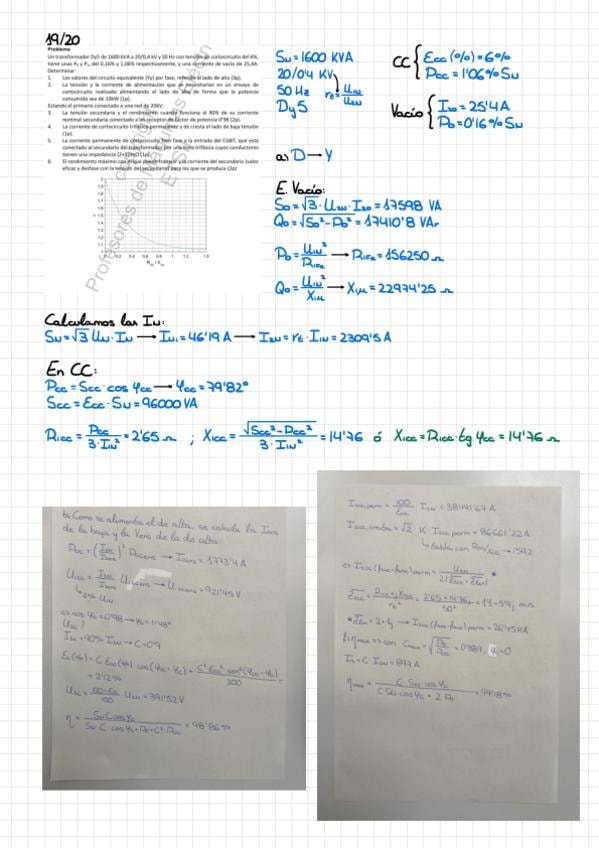 19/20
Problema
Un transformador Dy5 de 1600 kVA a 20/0,4 kV y 50 Hz con tensión de cortocircuito del 6%,
tiene unas P₀ y Pcc del 0,16% y 1,06% respectivamente, y una corriente de vacío de 25,4A.
Determinar:
1. Los valores del circuito equivalente (Yy) por fase, referido al lado de alta (3p).
2. La tensión y la corriente de alimentación que se necesitarían en un ensayo de
cortocircuito realizado alimentando el lado de alta de forma que la potencia
consumida sea de 10kW (1p).
Estando el primario conectado a una red de 20kV:
3. La tensión secundaria y el rendimiento cuando funciona al 90% de su corriente
nominal secundaria conectado a un receptor de factor de potencia 0'98 (2p).
4. La corriente de cortocircuito trifásico permanente y de cresta el lado de baja tensión
(1p).
5. La corriente permanente de cortocircuito fase-fase a la entrada del CGBT, que está
conectado al secundario del transformador por una línea trifásica cuyos conductores
tienen una impedancia (2+j)mΩ (1p).
6. El rendimiento máximo con el que puede trabajar y la corriente del secundario (valor
eficaz y desfase con la tensión del secundario) para los que se produce (2p)
Profesores de
Sn = 1600 KVA
20/0'4 KV
50 Hz rt = U1N/U2N
Dy5
CC { εcc(%) = 6% Pcc = 1'06% Sn
Vacío { I20 = 25'4 A P0 = 0'16% Sn
a) D → Y
E. Vacío:
S0 = √3 · U2N · I20 = 17598 VA
Q0 = √(S0² - P0²) = 17410'8 VAr
P0 = U1N²/R1Fe → R1Fe = 156250 Ω
Q0 = U1N²/X1μ → X1μ = 22974'25 Ω
Calculamos las IN:
SN = √3 UN · IN → IN1 = 46'19 A → I2N = rt · I1N = 2309'5 A
En CC:
Pcc = Scc · cos φcc → φcc = 79'82°
Scc = εcc · SN = 96000 VA
R1cc = Pcc/(3 · I1N²) = 2'65 Ω ; X1cc = √(Scc² - Pcc²)/(3 · I1N²) = 14'76 ó X1cc = R1cc · tg φcc = 14'76 Ω
b) Como se alimenta el de alta, se calcula la Iens
de la baja y la Vens de la de alta:
Pcc = (I2N/I2ens)² Pccens → I2ens = 1773'4 A
U1cc = I2N/I2ens U1ccens → U1ccens = 921'45 V
↳ 6% U1N
c) cos φ2 = 0'98 → φ2 = 11'48°
U2c?
I2c = 90% I2N → C = 0'9
εc(%) = C εcc(%) cos(φcc - φ2) + C² εcc² sen²(φcc - φ2)/200 =
= 2'12%
U2c = (100 - εc)/100 U2N = 391'52 V
η = SN C cos φ2/(SN C cos φ2 + P0 + C² Pcc) = 98'86%
I2cc,perm = 100/εcc I2N = 38491'67 A
I2cc,cresta = √2 K I2cc,perm = 86661'22 A
↳ tabla con Rcc/Xcc → 1'592
e) I2cc(fase-fase)perm = U2N/(2|Z2cc + ZL|) *
Z2cc = (R1cc + jX1cc)/rt² = (2'65 + 14'76j)/50² = 1'1 + 5'9j mΩ
* ZL = 2 + j → I2cc(fase-fase)perm = 26'45 KA
f) ηmax ⇒ con Cmax = √(P0/Pcc) = 0'389, φ2 = 0
I2 = C I2N = 897 A
ηmax = C SN cos φ2/(C SN cos φ2 + 2 P0) = 99'18%